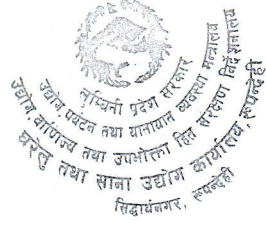 लुम्बिनी प्रदेश सरकार
उद्योग, पर्यटन तथा यातायात व्यवस्था मन्त्रालय
उद्योग वाणिज्य तथा उपभोक्ता हित संरक्षण निर्देशनालय
घरेलु तथा साना उद्योग कार्यालय, रूपन्देही
सिद्धार्थनगर, रूपन्देही